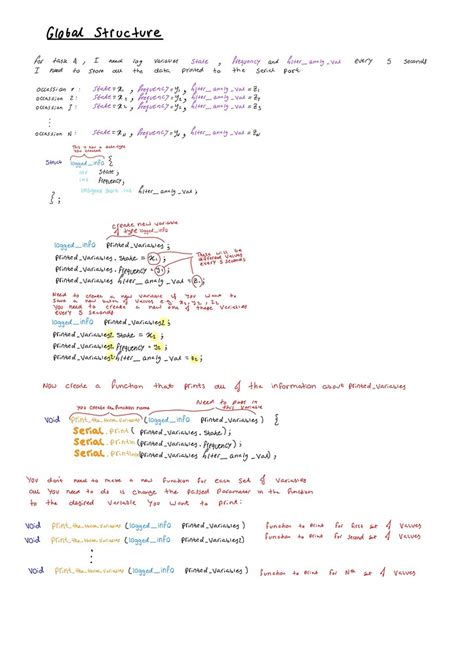 Global Structure
For task A, I need log variables state, frequency and filter_analg_val every 5 seconds
I need to store all the data printed to the serial port
state = x₁, frequency = y₁, filter_analg_val = z₁
occassion 2: state = x₂, frequency = y₂, filter_analg_val = z₂
occassion 3: state = x₃, frequency = y₃, filter_analg_val = z₃
⋮
occassion N: state = xN, frequency = yN, filter_analg_val = zN
This is now a data type
you created
struct logged_info {
int state;
int frequency;
short int filter_analg_val;
};
create new variable
of type logged_info
logged_info printed_variables;
printed_variables.state = x₁;
printed_variables.frequency = y₁;
printed_variables.filter_analg_val = z₁;
These will be
different values
every 5 seconds
Need to create a new variable if you want to
save a new batch of values e.g. x₂, y₂, z₂
You need to create a new one of these variables
every 5 seconds
logged_info printed_variables2;
printed_variables2.state = x₂;
printed_variables2.frequency = y₂;
printed_variables2.filter_analg_val = z₂;
Now create a function that prints all of the information about printed_variables
You create the function name
Need to pass in
this variable
void print_the_damn_variables (logged_info printed_variables) {
Serial.print(printed_variables.state);
Serial.println(printed_variables.frequency);
Serial.println(printed_variables.filter_analg_val);
You don't need to make a new function for each set of variables
all you need to do is change the passed parameter in the function
to the desired variable you want to print:
void print_the_damn_variables (logged_info printed_variables) function to print for first set of values
void print_the_damn_variables (logged_info printed_variables2) function to print for second set of values
⋮
void print_the_damn_variables (logged_info printed_variablesN) function to print for Nth set of values